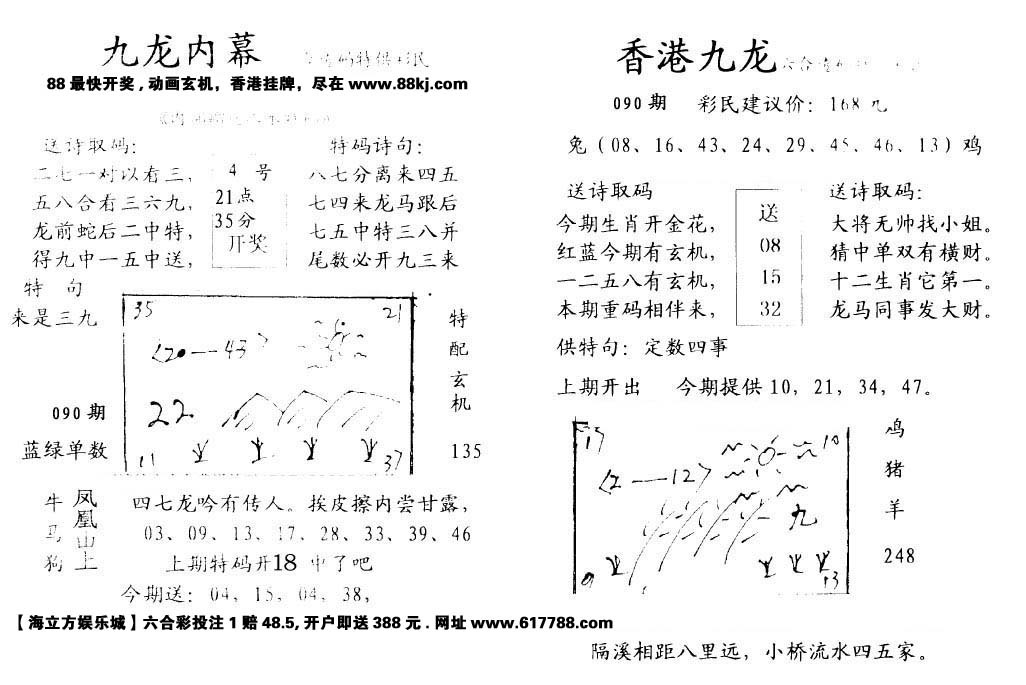 九龙内幕
码特供彩民
88最快开奖，动画玄机，香港挂牌，尽在 www.88kj.com
送诗取码：
二七一对以看三，
五八合看三六九，
龙前蛇后二中特，
得九中一五中送，
4 号
21点
35分
开奖
特码诗句：
八七分离来四五
七四来龙马跟后
七五中特三八并
尾数必开九三来
特 句
来是三九
090期
蓝绿单数
35
21
20—43
22
11
37
特
配
玄
机
135
牛
马
狗
凤
凰
山
上
四七龙吟有传人。挨皮擦内尝甘露，
03、09、13、17、28、33、39、46
上期特码开18 中了吧
今期送：04，15，04，38，
【海立方娱乐城】六合彩投注1赔48.5,开户即送388元.网址www.617788.com
香港九龙
六合
090期 彩民建议价：168元
兔（08、16、43、24、29、45、46、13）鸡
送诗取码
今期生肖开金花，
红蓝今期有玄机，
一二五八有玄机，
本期重码相伴来，
送
08
15
32
送诗取码：
大将无帅找小姐。
猜中单双有横财。
十二生肖它第一。
龙马同事发大财。
供特句：定数四事
上期开出 今期提供10，21，34，47。
17
10
2—12
九
9
13
鸡
猪
羊
248
隔溪相距八里远，小桥流水四五家。